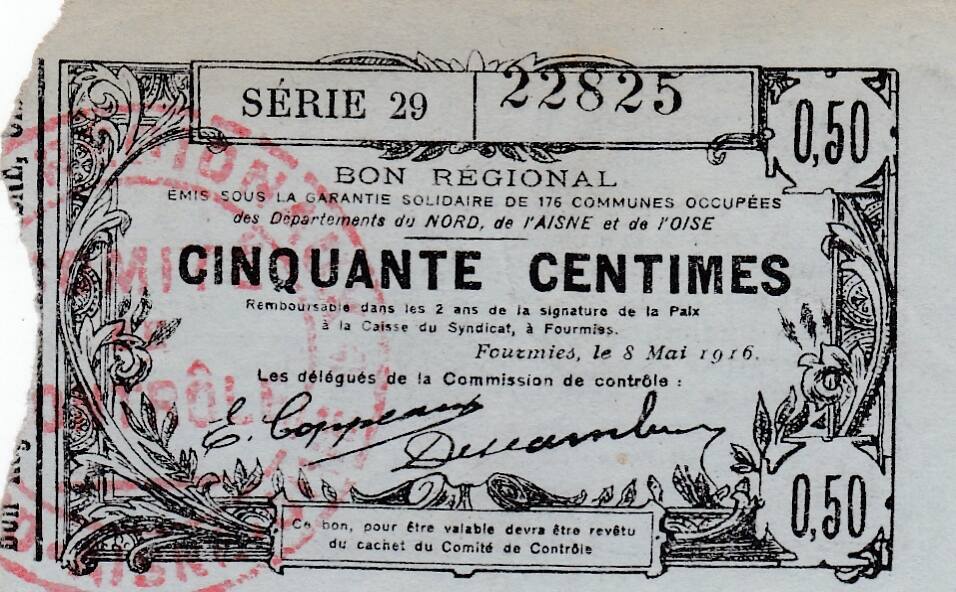 SÉRIE 29
22825
0,50
BON RÉGIONAL
ÉMIS SOUS LA GARANTIE SOLIDAIRE DE 176 COMMUNES OCCUPÉES
des Départements du NORD, de l'AISNE et de l'OISE
CINQUANTE CENTIMES
Remboursable dans les 2 ans de la signature de la Paix
à la Caisse du Syndicat, à Fourmies.
Fourmies, le 8 Mai 1916.
Les délégués de la Commission de contrôle :
0,50
Ce bon, pour être valable devra être revêtu
du cachet du Comité de Contrôle